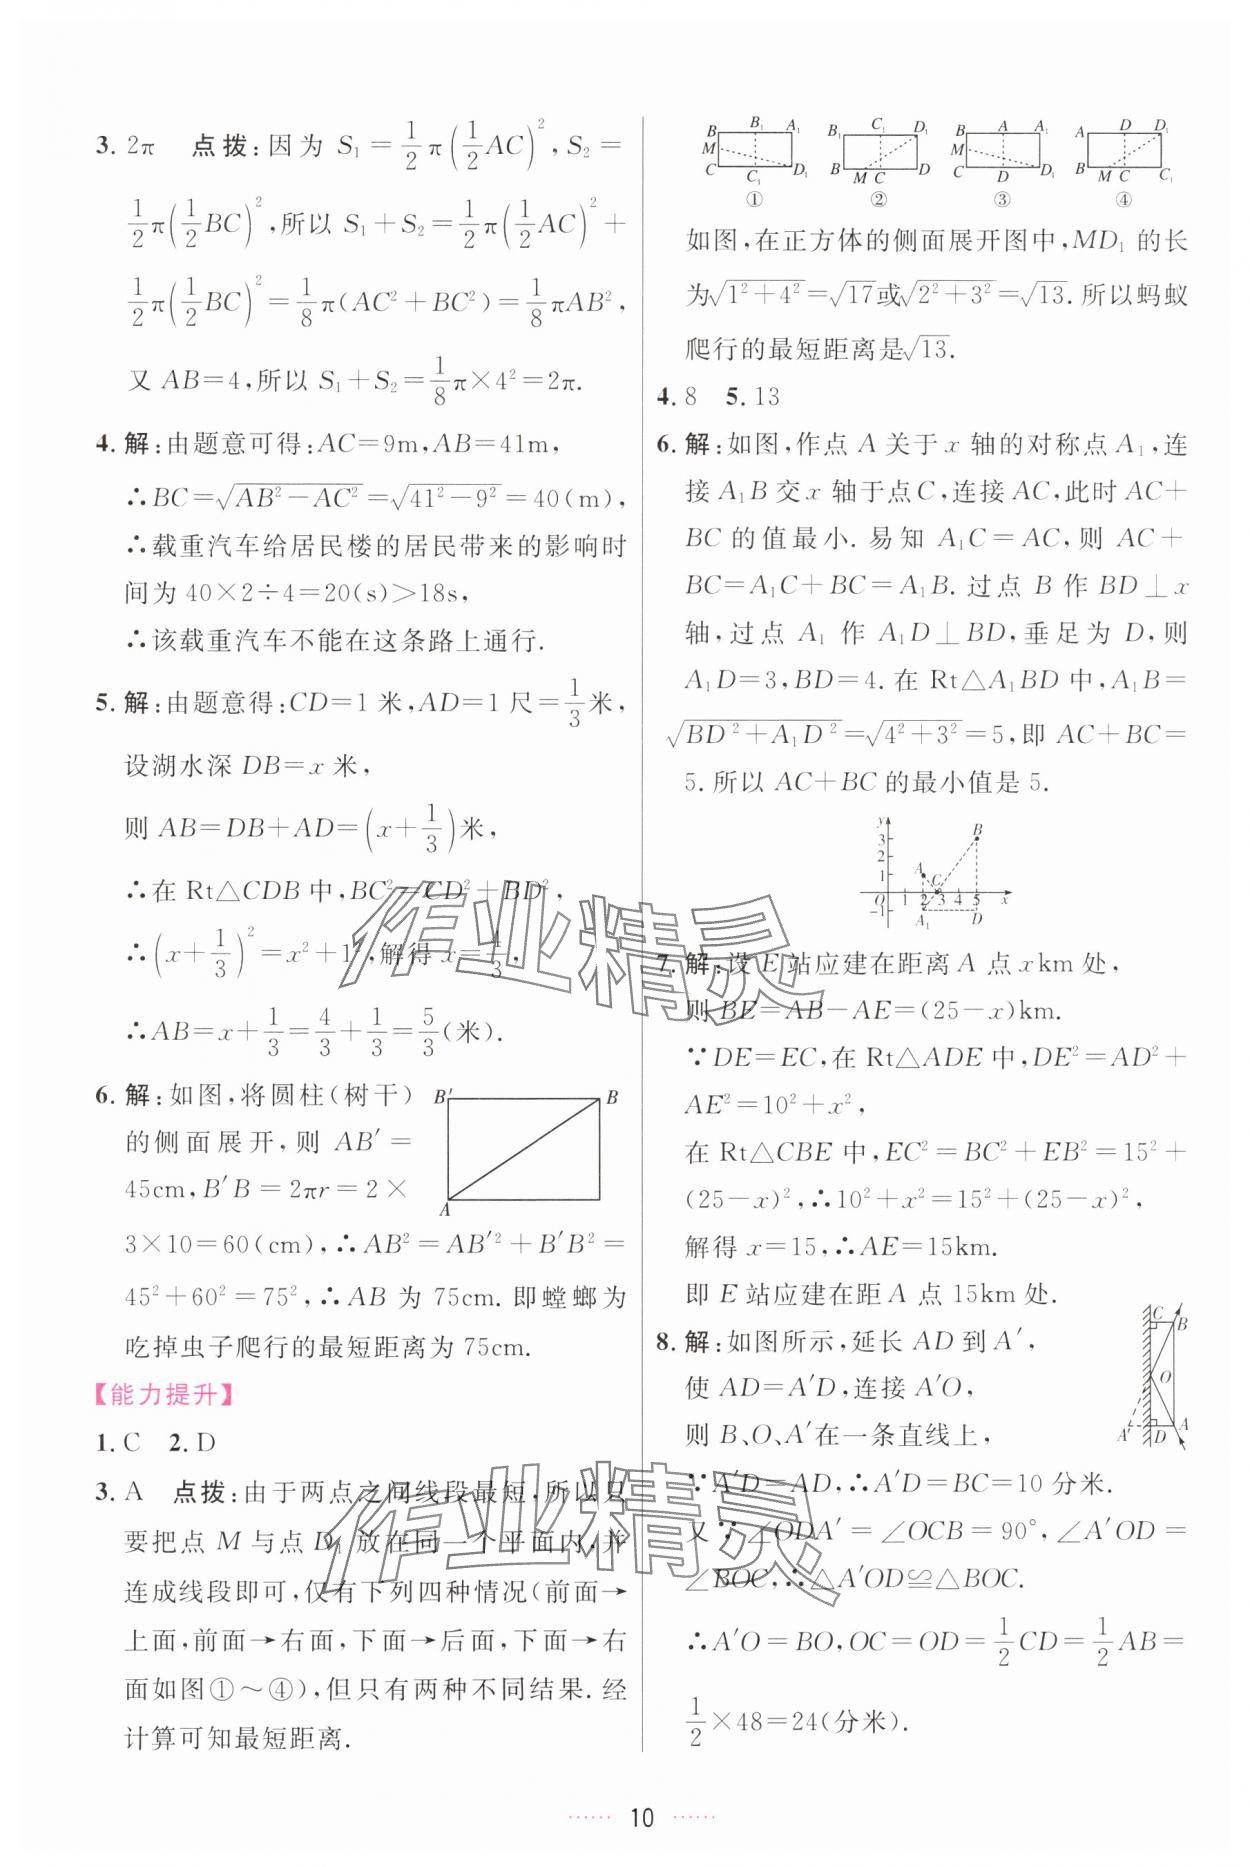 3. 2π 点拨:因为 S₁=1/2π(1/2AC)²,S₂=
1/2π(1/2BC)²,所以 S₁+S₂=1/2π(1/2AC)²+
1/2π(1/2BC)²=1/8π(AC²+BC²)=1/8πAB²,
又 AB=4,所以 S₁+S₂=1/8π×4²=2π.
4. 解:由题意可得:AC=9m,AB=41m,
∴BC=√(AB²-AC²)=√(41²-9²)=40(m),
∴载重汽车给居民楼的居民带来的影响时
间为 40×2÷4=20(s)>18s,
∴该载重汽车不能在这条路上通行.
5. 解:由题意得:CD=1 米,AD=1 尺=1/3米,
设湖水深 DB=x 米,
则 AB=DB+AD=(x+1/3)米,
∴在 Rt△CDB 中,BC²=CD²+BD²,
∴(x+1/3)²=x²+1²,解得 x=4/3,
∴AB=x+1/3=4/3+1/3=5/3(米).
6. 解:如图,将圆柱(树干)
的侧面展开,则 AB′=
45cm,B′B=2πr=2×
B′ B
A
3×10=60(cm),∴AB²=AB′²+B′B²=
45²+60²=75²,∴AB 为 75cm.即螳螂为
吃掉虫子爬行的最短距离为 75cm.
【能力提升】
1. C 2. D
3. A 点拨:由于两点之间线段最短,所以只
要把点 M 与点 D₁ 放在同一个平面内,并
连成线段即可,仅有下列四种情况(前面→
上面,前面→右面,下面→后面,下面→右
面如图①~④),但只有两种不同结果.经
计算可知最短距离.
B B₁ A₁ B₁ C₁ D₁ B A A₁ A D D₁
M M
C C₁ D₁ B M C D C D D₁ B M C C₁
① ② ③ ④
如图,在正方体的侧面展开图中,MD₁ 的长
为√(1²+4²)=√17或√(2²+3²)=√13.所以蚂蚁
爬行的最短距离是√13.
4. 8 5. 13
6. 解:如图,作点 A 关于 x 轴的对称点 A₁,连
接 A₁B 交 x 轴于点 C,连接 AC,此时 AC+
BC 的值最小.易知 A₁C=AC,则 AC+
BC=A₁C+BC=A₁B.过点 B 作 BD⊥x
轴,过点 A₁ 作 A₁D⊥BD,垂足为 D,则
A₁D=3,BD=4.在 Rt△A₁BD 中,A₁B=
√(BD²+A₁D²)=√(4²+3²)=5,即 AC+BC=
5.所以 AC+BC 的最小值是 5.
y
3 B
2
1 A C
O 1 2 3 4 5 x
-1 A₁ D
7. 解:设 E 站应建在距离 A 点 x km 处,
则 BE=AB-AE=(25-x)km.
∵DE=EC,在 Rt△ADE 中,DE²=AD²+
AE²=10²+x²,
在 Rt△CBE 中,EC²=BC²+EB²=15²+
(25-x)²,∴10²+x²=15²+(25-x)²,
解得 x=15,∴AE=15km.
即 E 站应建在距 A 点 15km 处.
8. 解:如图所示,延长 AD 到 A′,
使 AD=A′D,连接 A′O,
则 B、O、A′在一条直线上,
C B
O
A′ D A
∵A′D=AD,∴A′D=BC=10 分米.
又∵∠ODA′=∠OCB=90°,∠A′OD=
∠BOC,∴△A′OD≌△BOC.
∴A′O=BO,OC=OD=1/2CD=1/2AB=
1/2×48=24(分米).
作业精灵
作业精灵
10